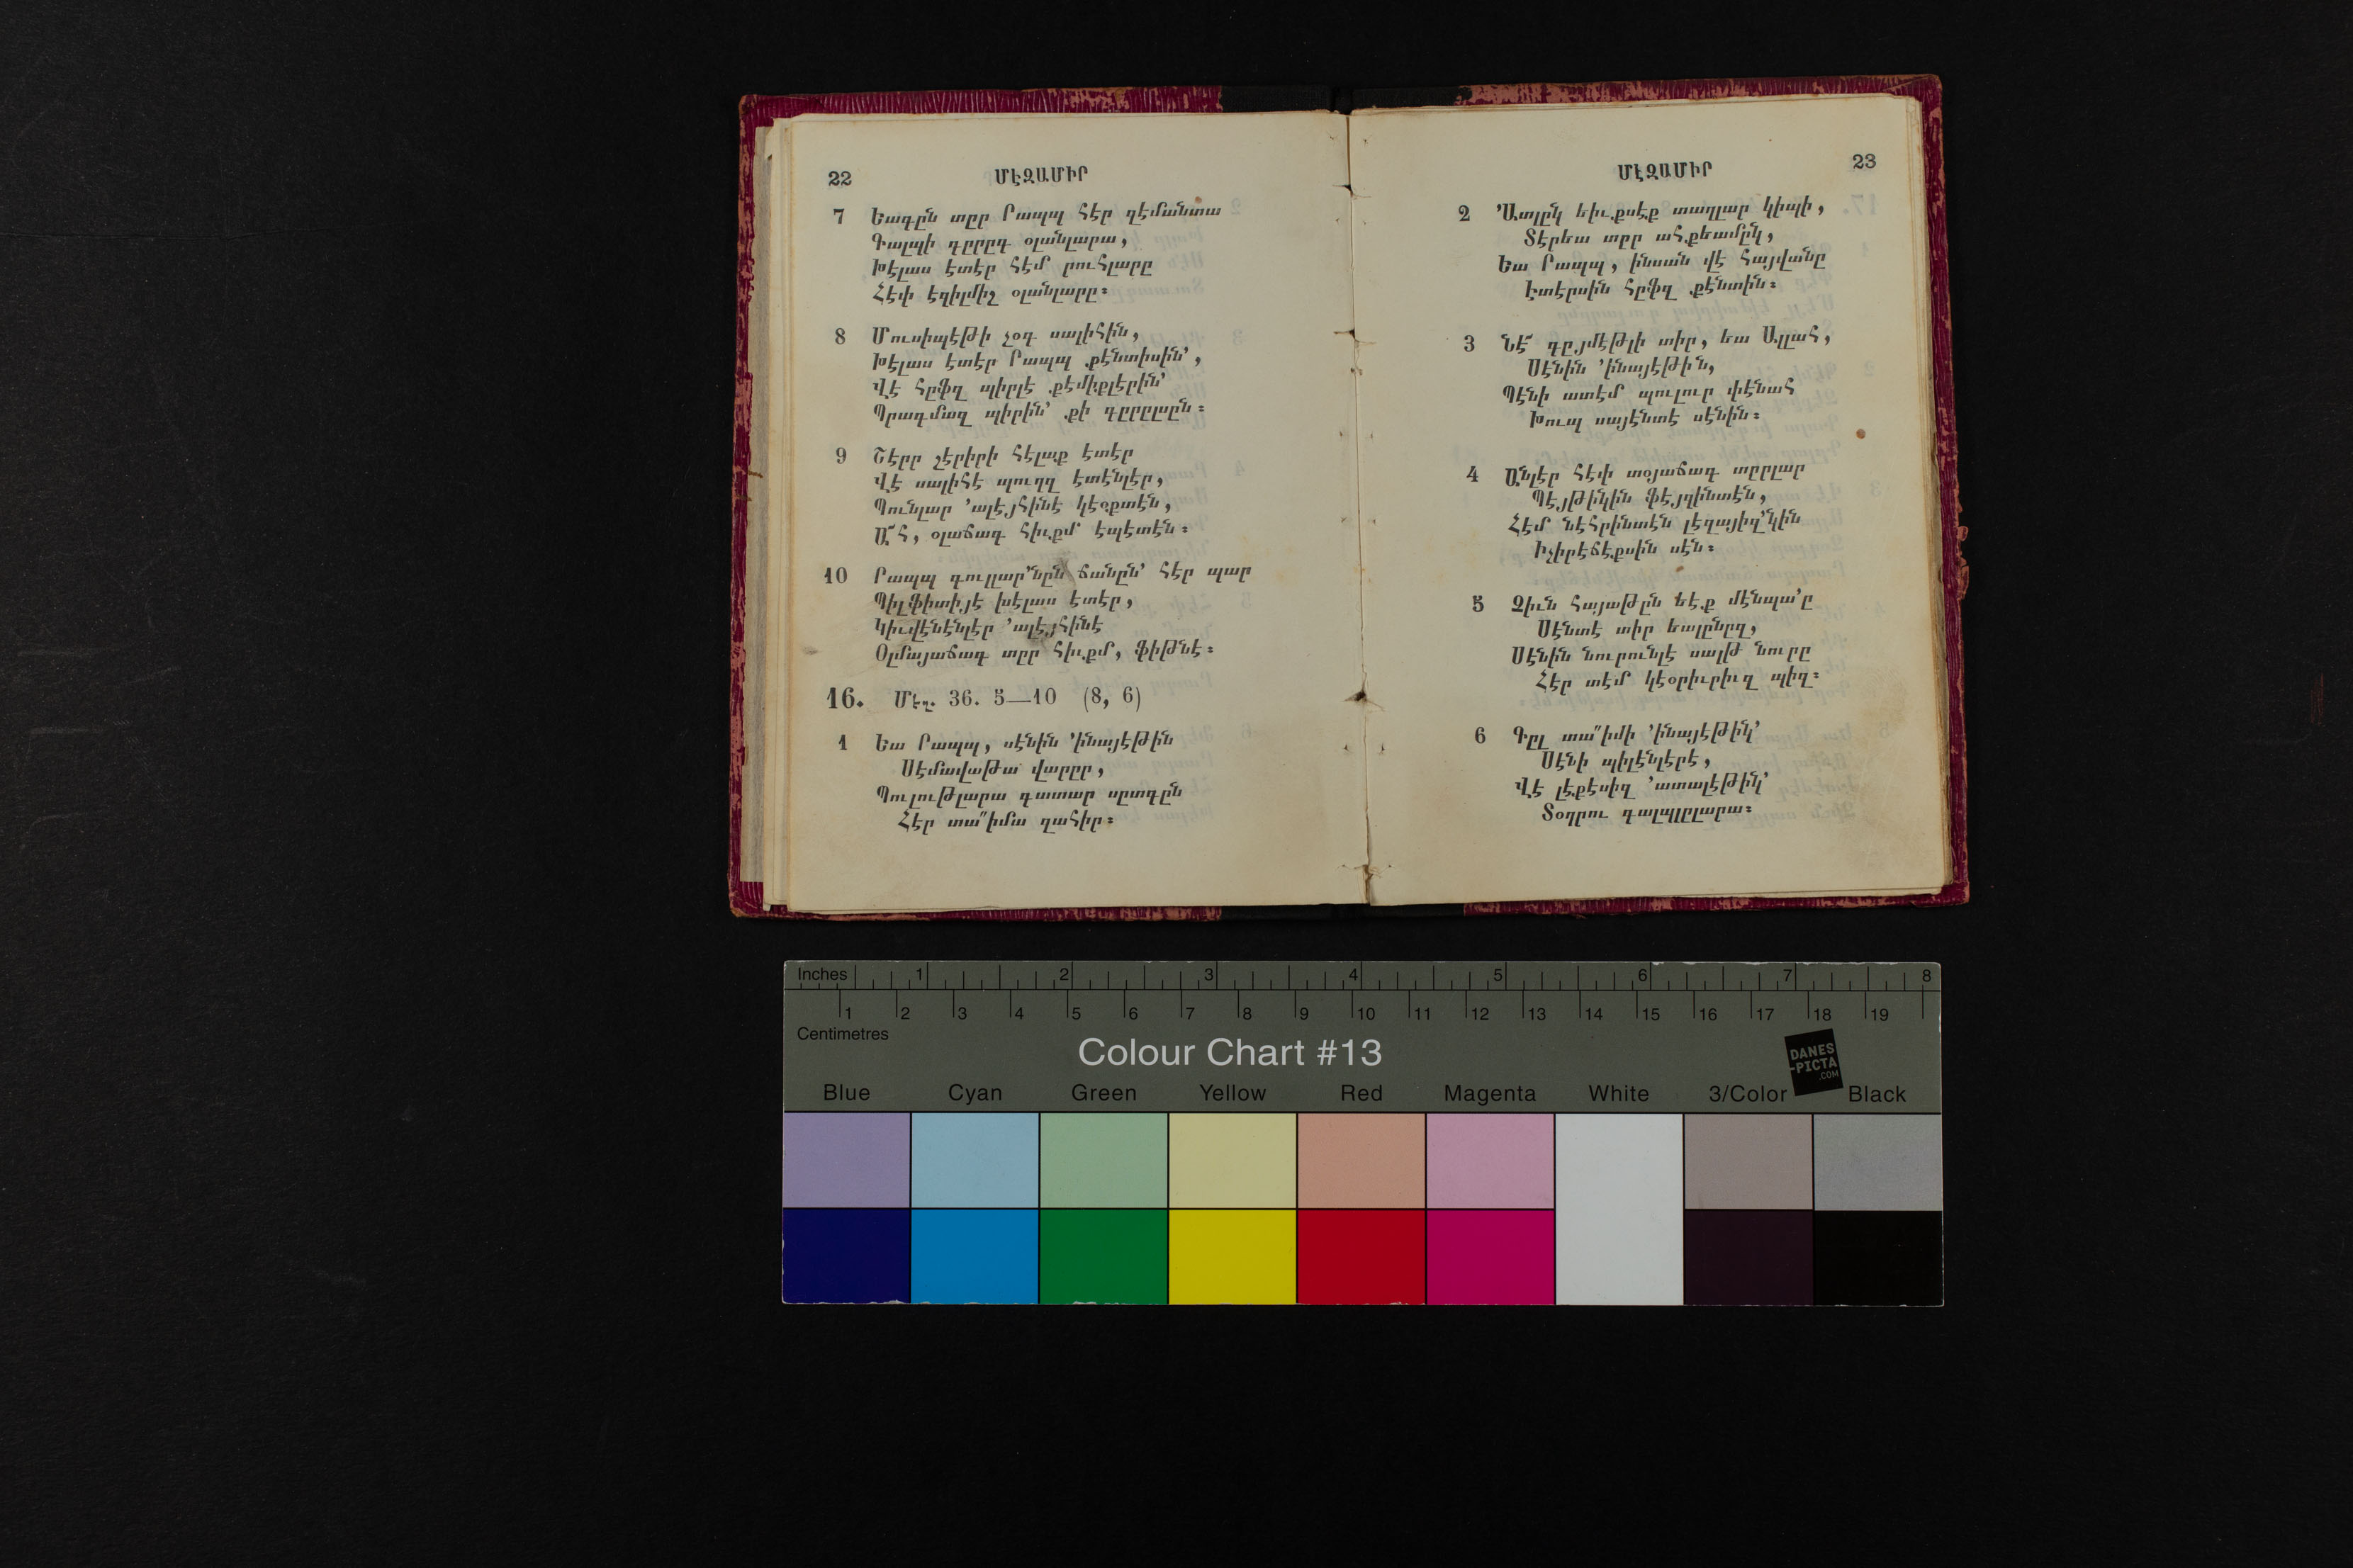 22 ՄԷԶԱՄԻՐ
7 Եագըն տըր Րապպ հէր զէմանտա
Գալպի գըրըգ օլանլարա,
Խէլաս էտէր հէմ րուհլարը
Հէփ էզիլմիշ օլանլարը։
8 Մուսիպէթի չօգ սալիհին,
Խէլաս էտէր Րապպ քէնտիսին՚,
Վէ հըֆզ պիրլէ քէմիքլէրին՚
Պրագմազ պիրին՚ քի գըրըլըն։
9 Շէրր շէրիրի հէլաք էտէր
Վէ սալիհէ պուղզ էտէնլէր,
Պունլար ՚ալէյհինէ կէօքտէն,
Ա՜հ, օլաճագ հիւքմ՚ էպէտէն։
10 Րապպ գուլլար՚նըն ճանըն՚ հէր պար
Պիլֆիտիյէ խէլաս էտէր,
Կիւվէնէնլէր ՚ալէյհինէ
Օլմայաճագ տըր հիւքմ, ֆիթնէ։
16. Մէզ. 36. 5—10 (8, 6)
1 Եա Րապպ, սէնին ՚ինայէթին
Սէմավաթա վարըր,
Պուլութլարա գատար սըտգըն
Հէր տա՚՚իմա զահիր։
ՄԷԶԱՄԻՐ 23
2 ՚Ատլըկ եիւքսէք տաղլար կիպի,
Տէրեա տըր ահքեամըկ,
Եա Րապպ, ինսան վէ հայվանը
Էտէրսին հըֆզ քէնտին։
3 Նէ՜ գըյմէթլի տիր, եա Ալլահ,
Սէնին ՚ինայէթին,
Պէնի ատէմ պուլուր փէնահ
Խուպ սայէնտէ սէնին։
4 Անլէր հէփ տօյաճագ տըրլար
Պէյթիկին ֆէյզինտէն,
Հէմ նէհրինտէն լէզայիզ՚կին
Իչիրէճէքսին սէն։
5 Զիւն հայաթըն եէք մէնպա՚ը
Սէնտէ տիր եալընըզ,
Սէնին նուրունլէ սալթ նուրը
Հէր տէմ կէօրիւրիւզ պիզ։
6 Գըլ տա՚՚իմի ՚ինայէթիկ՚
Սէնի պիլէնլէրէ,
Վէ լէքէսիզ ՚ատալէթիկ՚
Տօղրու գալպլըլարա։
Inches 1 2 3 4 5 6 7 8
1 2 3 4 5 6 7 8 9 10 11 12 13 14 15 16 17 18 19
Centimetres
Colour Chart #13
DANES
-PICTA
.COM
Blue Cyan Green Yellow Red Magenta White 3/Color Black